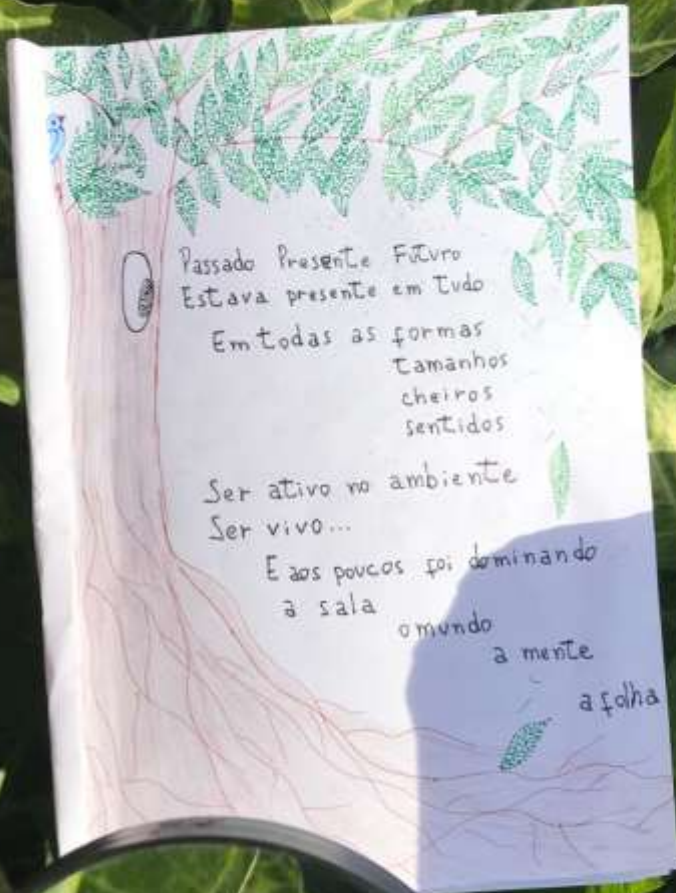 Passado Presente Futuro
Estava presente em tudo
Em todas as formas
tamanhos
cheiros
sentidos
Ser ativo no ambiente
Ser vivo...
E aos poucos foi dominando
a sala
o mundo
a mente
a folha